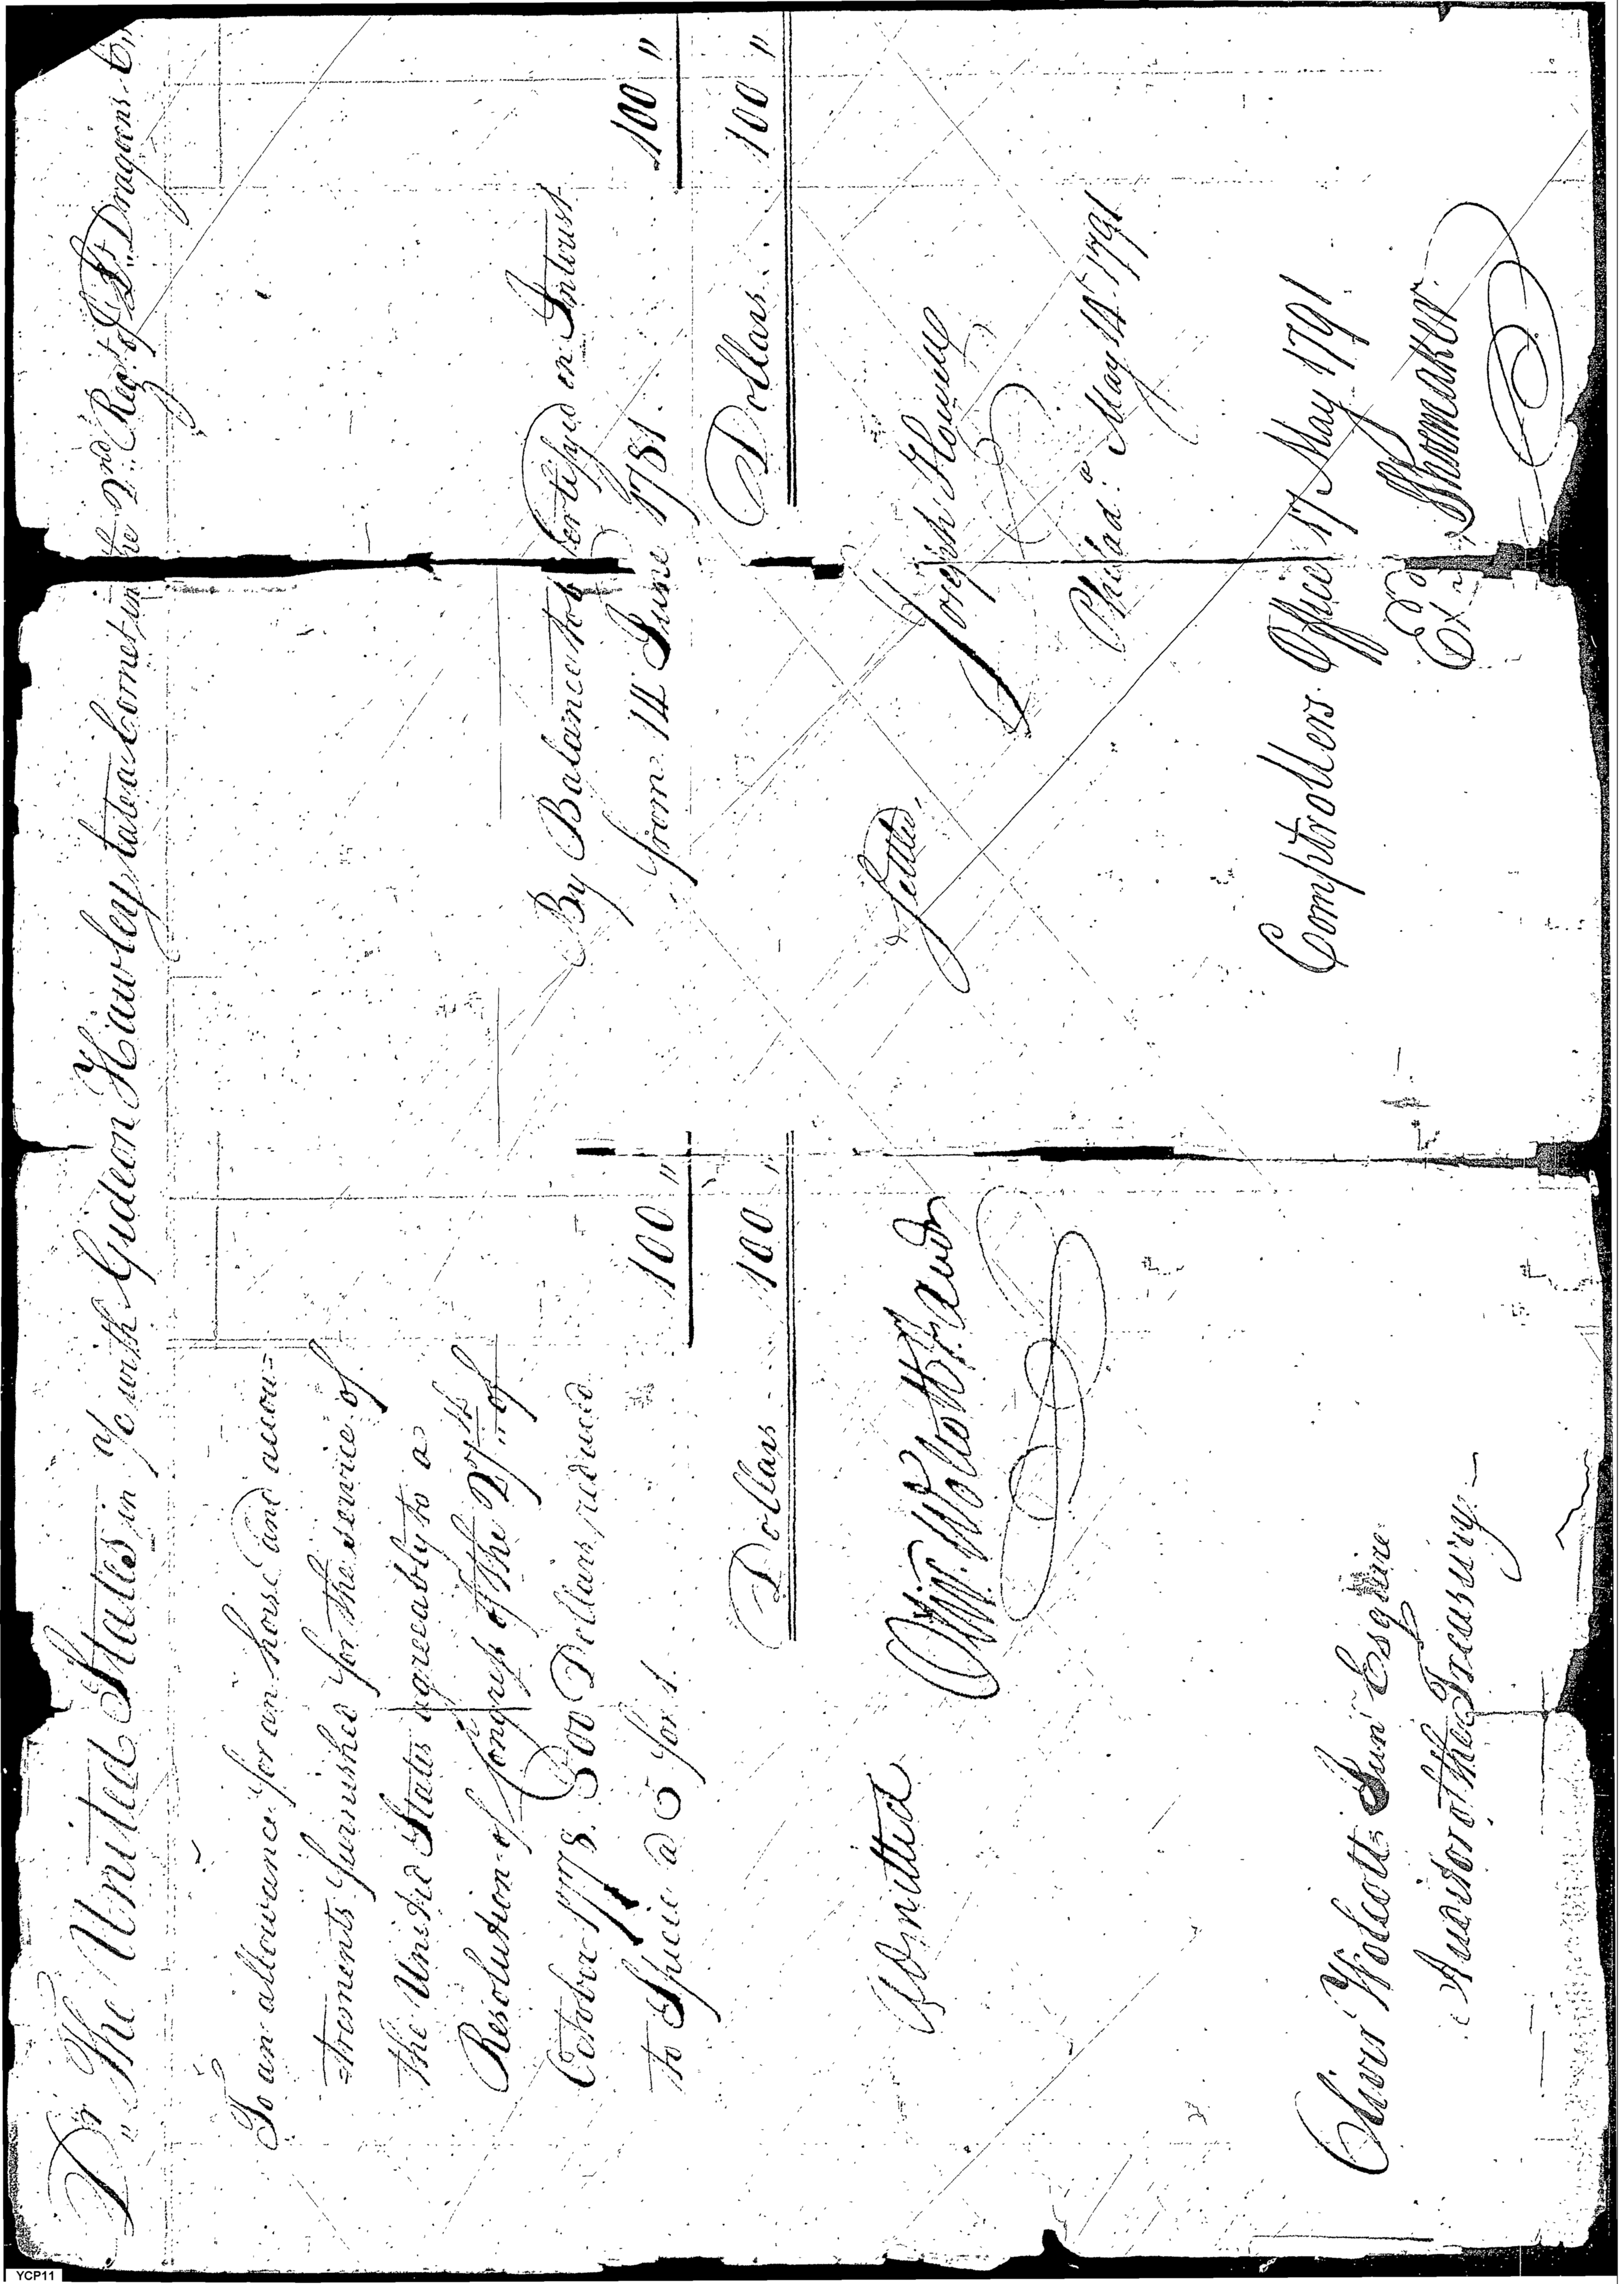 Dr. The United States in a/c with Gideon Hawley late a Cornet in the 2nd Regt. of Lt. Dragoons. Cr
To an allowance for an horse and accou=
=trements furnished for the service of
the United States agreeably to a
Resolution of Congress of the 27th of
October 1778. 500 Dollars, reduced
to Specie @ 5 for 1. 100 "
Dollars 100 "
By Balance to be Certifyed on Interest
from 14 June 1781. 100 "
Dollars 100 "
Admitted Oliv. Wolcott Jr. Audr
Settled. Joseph Howell
Philada. May 14th 1791
Oliver Wolcott Junr Esquire
Auditor of the Treasury
Comptrollers Office 17 May 1791
Exd Shoemaker
YCP11